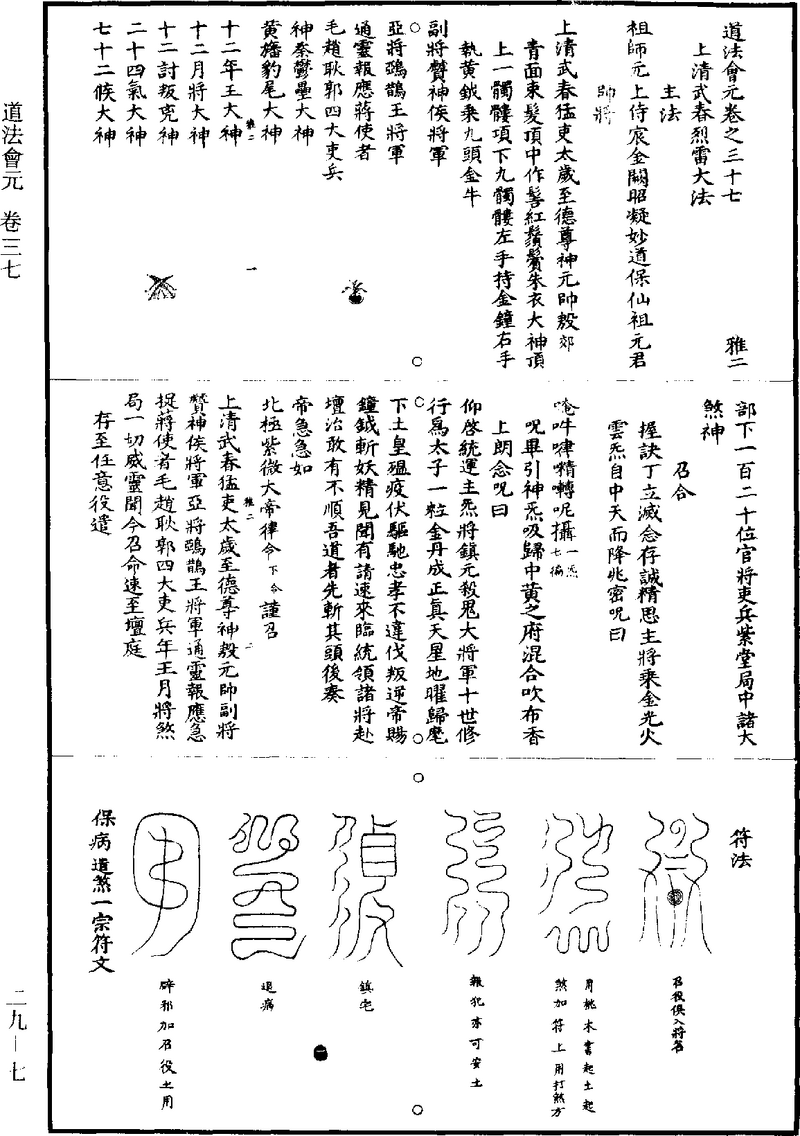 道法會元卷之三十七
雅二
上清武春烈雷大法
主法
祖師元上侍宸金闕昭凝妙道保仙祖元君
帥將
上清武春猛吏太歲至德尊神元帥殷郊
青面束髮頂中作髻紅鬚鬢朱衣大神頂
上一髑髏項下九髑髏左手持金鐘右手
執黃鉞乘九頭金牛
副將贊神侯將軍
亞將鴟鵲王將軍
通靈報應蔣使者
毛趙耿郭四大吏兵
神荼鬱壘大神
黃旛豹尾大神
十二年王大神
十二月將大神
十二討叛克神
二十四氣大神
七十二候大神
部下一百二十位官將吏兵紫堂局中諸大
煞神
召合
握訣丁立滅念存誠精思主將乘金光火
雲炁自中天而降兆密呪曰
唵吽㖀𤚥囀呢攝一炁七徧
呪畢引神炁吸歸中黃之府混合吹布香
上朗念呪曰
仰啓統運主炁將鎮元殺鬼大將軍十世修
行爲太子一粒金丹成正真天星地曜歸麾
下土皇瘟疫伏驅馳忠孝不違伐叛逆帝賜
鐘鉞斬妖精見聞有請速來臨統領諸將赴
壇治敢有不順吾道者先斬其頭後奏
帝急急如
北極紫微大帝律令下令謹召
上清武春猛吏太歲至德尊神殷元帥副將
贊神侯將軍亞將鴟鵲王將軍通靈報應急
捉蔣使者毛趙耿郭四大吏兵年王月將煞
局一切威靈聞今召命速至壇庭
存至任意役遣
符法
召役俱入將名
用桃木書起土起
煞加符上用打煞方
報犯亦可安土
鎮宅
退病
辟邪加召役土用
保病遣煞一宗符文
道法會元 卷三七
二九—七